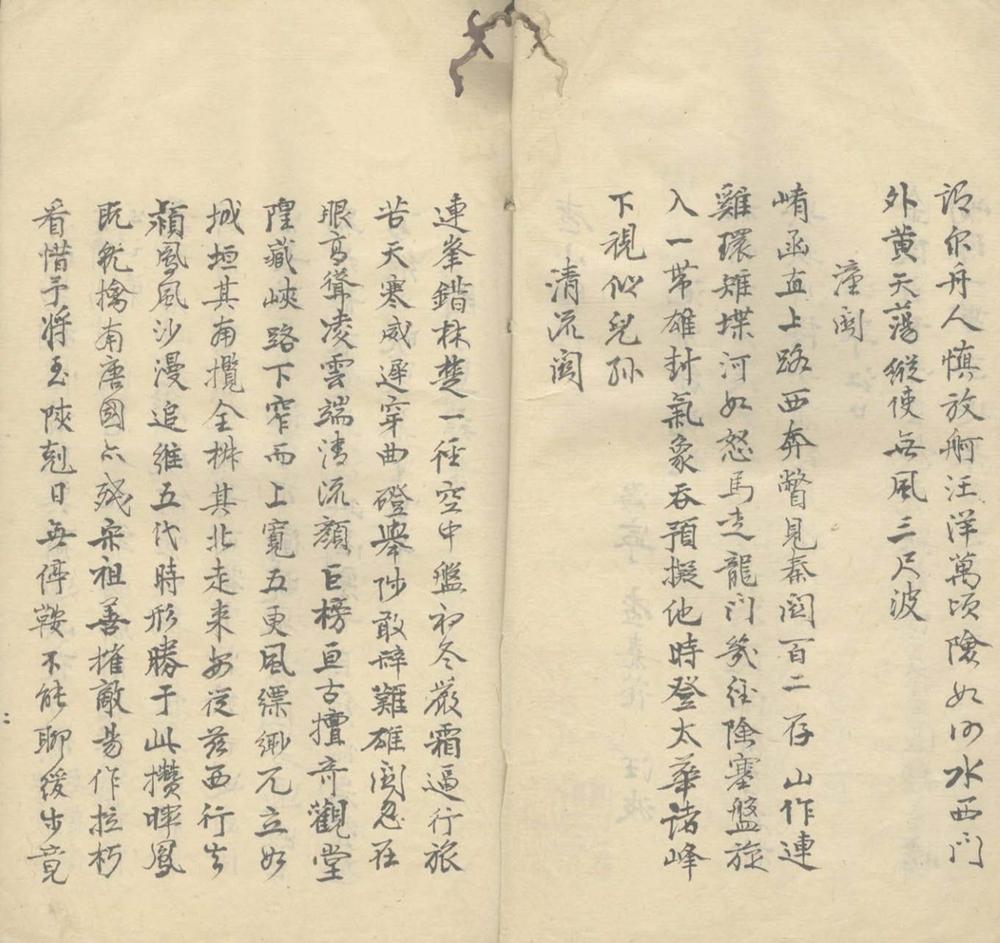 語尔舟人慎放舸汪洋萬頃險如何水西门
外黄天蕩縱使無風三尺波
潼関
崤函直上路西奔瞥見秦関百二存山作連
雞環雉堞河如怒馬走龍门幾經險塞盤旋
入一帶雄封氣象吞預擬他時登太華諸峰
下視似兒孫
清流関
連峯錯林楚一徑空中盤初冬嚴霜逼行旅
苦天寒威遲穿曲磴舉陟敢辭難雄関忽在
眼高聳凌雲端清流顏巨榜亘古擅奇觀堂
隍藏峽路下窄而上寬五更風縹緲兀立如
城垣其南攬全椒其北走来安從兹西行去
潁鳳風沙漫追維五代時形勝于此攢暉鳳
既就擒南唐國亦殘宋祖善摧敵易作拉朽
看惜予将至陝剋日無停鞍不能聊緩步竟